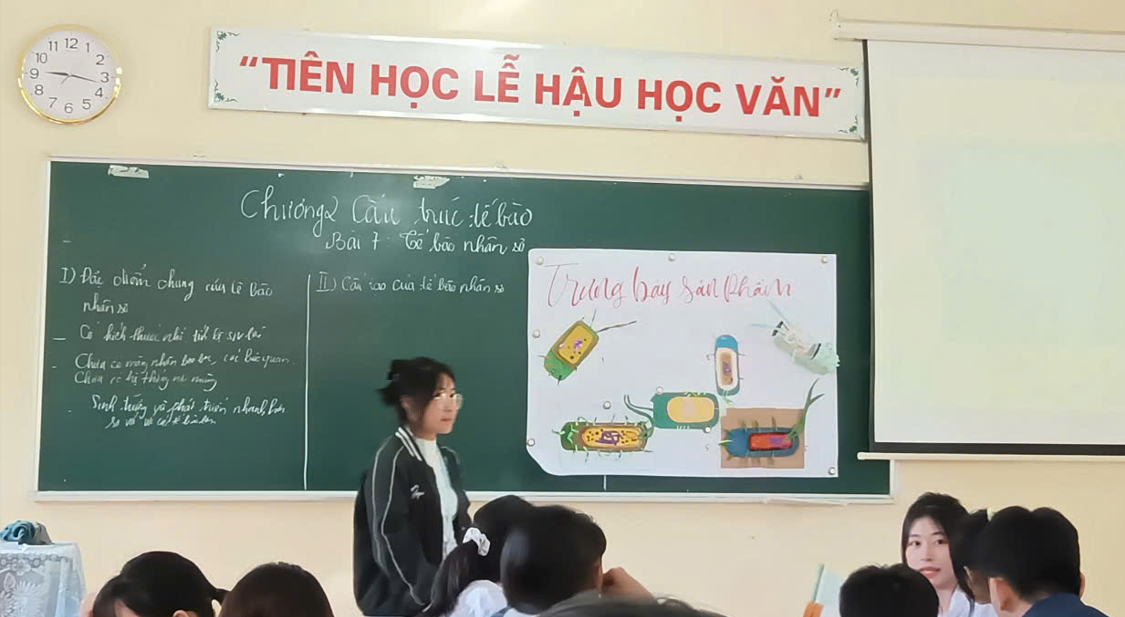 “TIÊN HỌC LỄ HẬU HỌC VĂN”
11 12 1
10 2
9 3
8 4
7 6 5
Chương 2 Cấu trúc tế bào
Bài 7 Tế bào nhân sơ
I) Đặc điểm chung của tế bào
nhân sơ
_ Có kích thước nhỏ
- Chưa có màng nhân bao bọc, các bào quan.
Chưa có hệ thống nội màng
- Sinh trưởng và phát triển nhanh hơn
so với
II) Cấu tạo của tế bào nhân sơ
Trưng bày sản phẩm